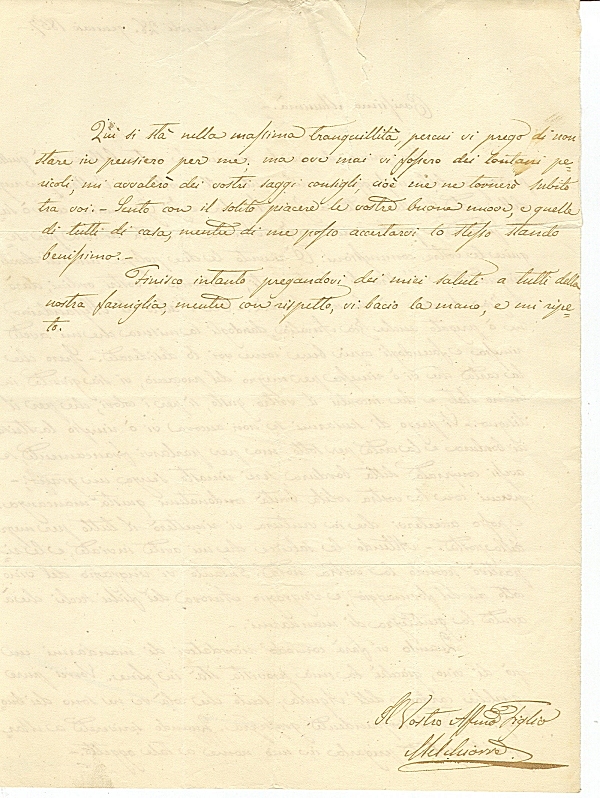 Quì si stà nella massima tranquillità, percui vi prego di non
stare in pensiero per me, ma ove mai vi fossero dei lontani pe=
ricoli, mi avvalerò dei vostri saggi consigli, cioè che me ne tornerò subito
tra voi. - Sento con il solito piacere le vostre buone nuove, e quelle
di tutti di casa, mentre di me posso accertarvi lo stesso stando
benissimo. -
Finisco intanto pregandovi dei miei saluti a tutti della
nostra famiglia, mentre con rispetto, vi bacio la mano, e mi ripe=
to.
Il Vostro Affmo Figlio
Melchiorre